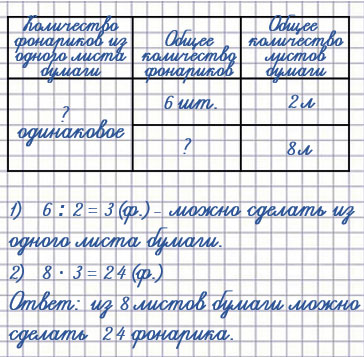 Количество
фонариков из
одного листа
бумаги
Общее
количество
фонариков
Общее
количество
листов
бумаги
?
одинаковое
6 шт.
2 л
?
8 л
1) 6 : 2 = 3 (ф.) - можно сделать из
одного листа бумаги.
2) 8 · 3 = 24 (ф.)
Ответ: из 8 листов бумаги можно
сделать 24 фонарика.